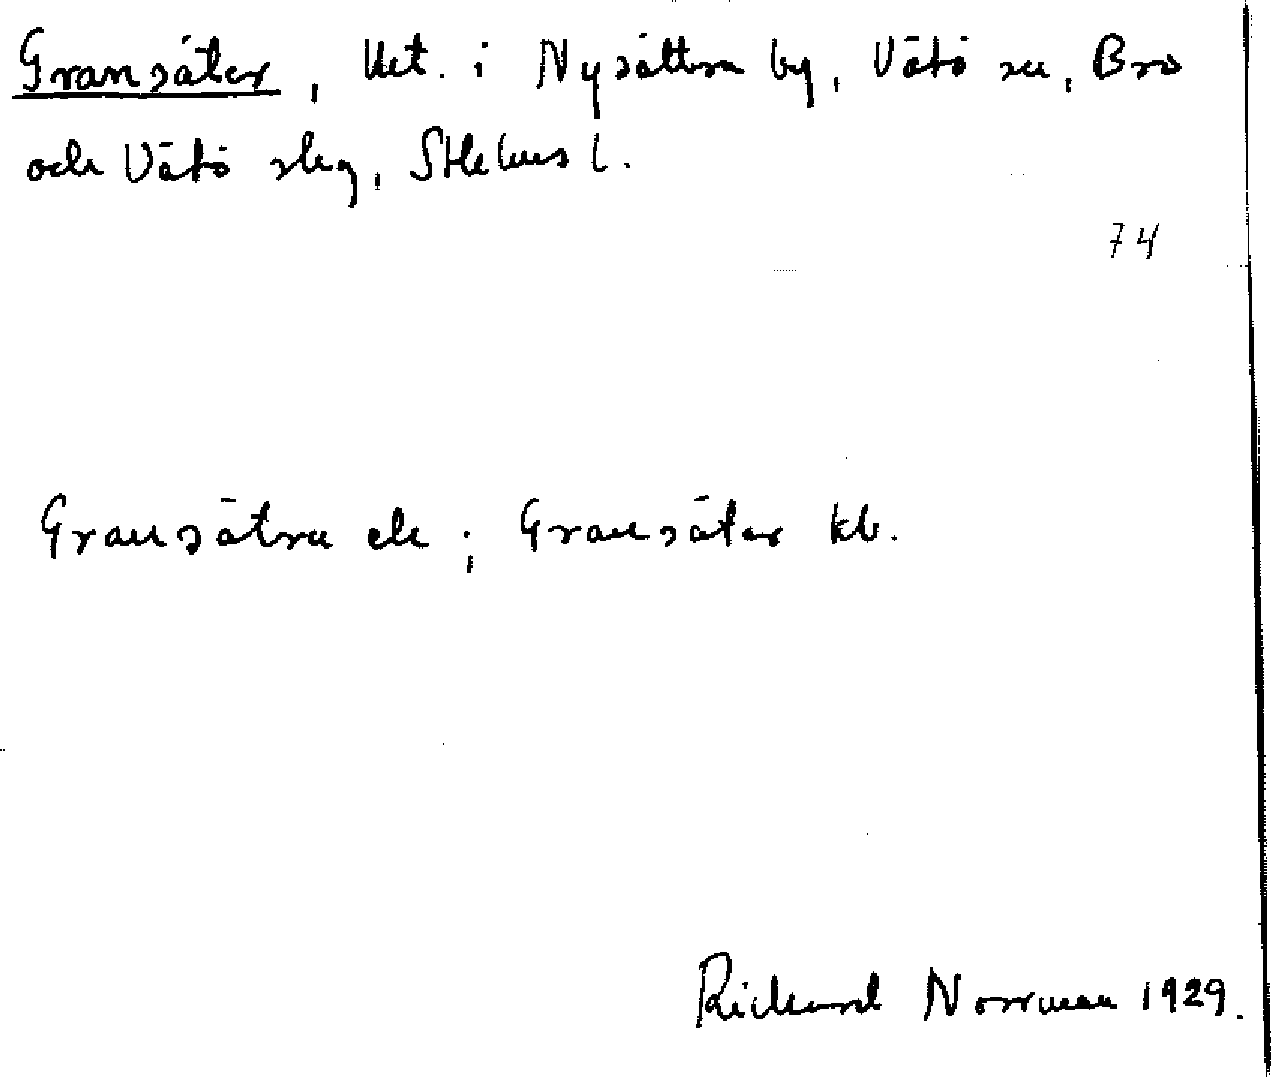 Gransäter, lht. i Nysättra by, Vätö sn, Bro
och Vätö skg, Sthlms l.
74
Gransätra ek; Gransäter kb.
Rickard Norrman 1929.